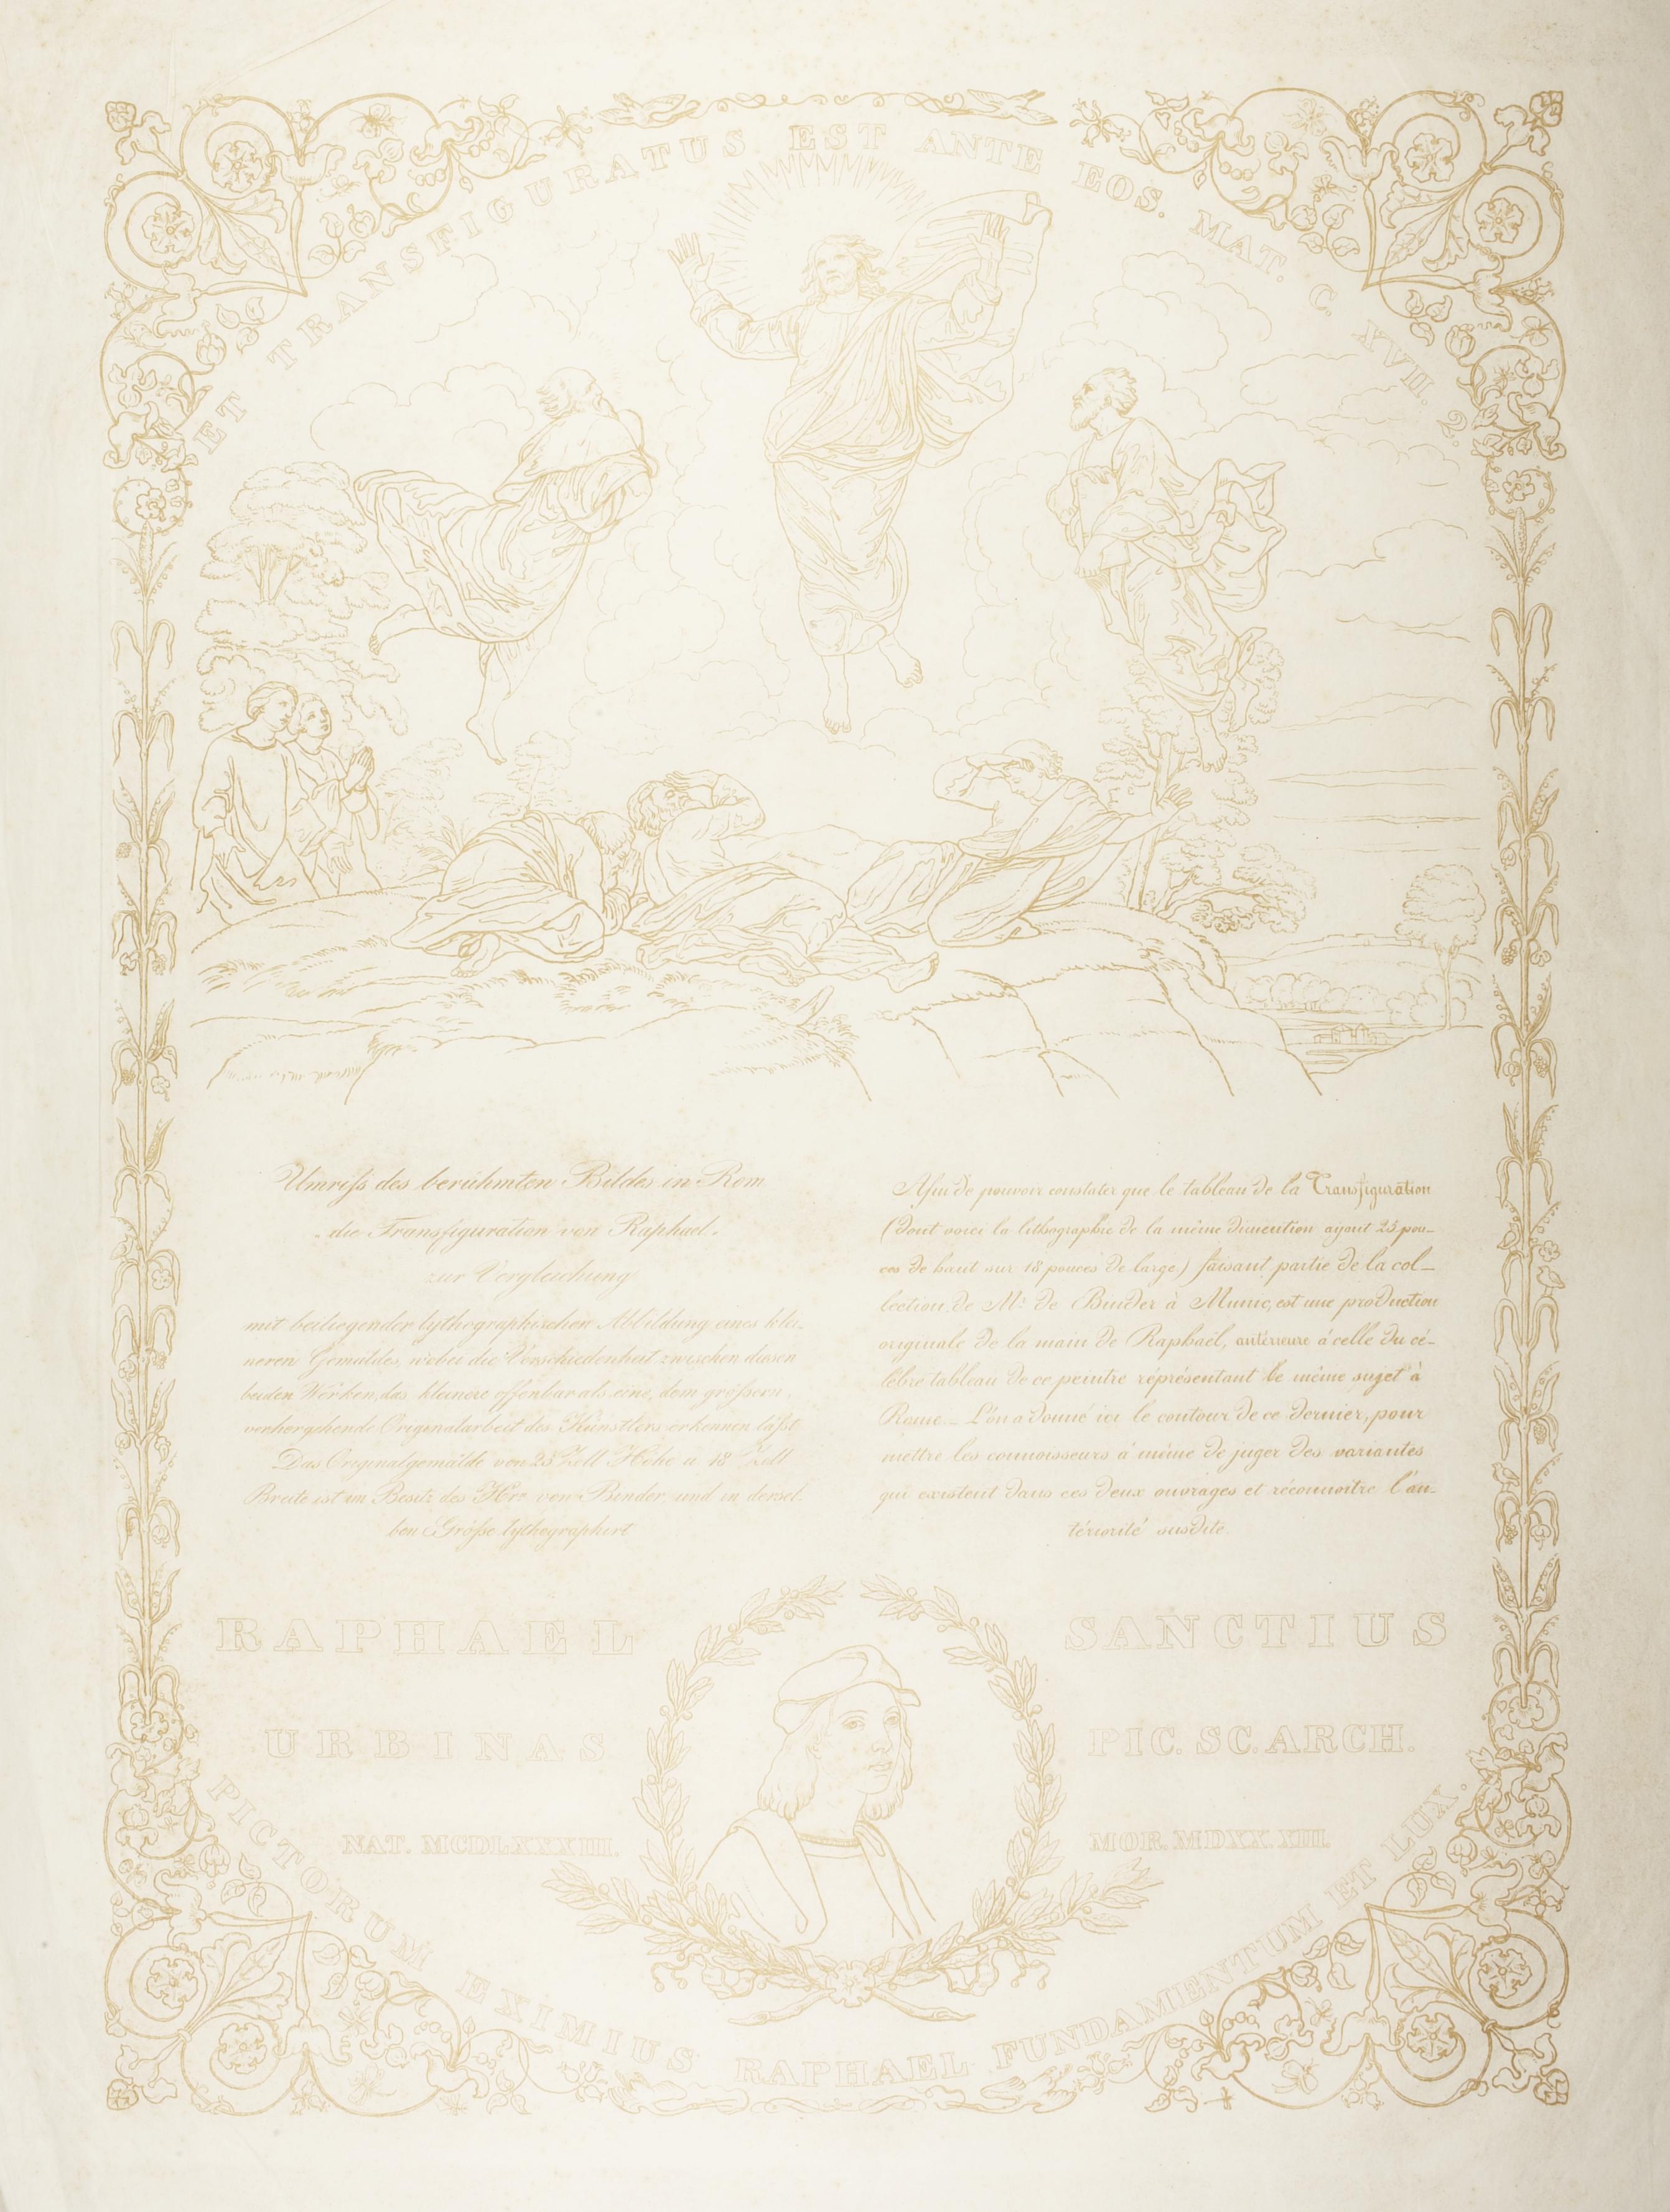 ET TRANSFIGURATUS EST ANTE EOS. MAT. C. XVII. 2.
Umriſs des berühmten Bildes in Rom
die Transfiguration von Raphael.
zur Vergleichung
mit beiliegender lythographischen Abbildung eines klei-
neren Gemäldes, wobei die Verschiedenheit zwischen diesen
beiden Werken, das kleinere offenbar als eine, dem gröſsern
vorhergehende Originalarbeit des Künstlers erkennen läſst.
Das Originalgemälde von 25 Zoll Höhe u 18 Zoll
Breite ist im Besitz des Hrn von Binder, und in dersel-
ben Gröſse lythographirt
Afin de pouvoir constater que le tableau de la Transfiguration
(dont voici la lithographie de la même dimention ayant 25 pou-
ces de haut sur 18 pouces de large) faisant partie de la col-
lection de Mr de Binder à Munic, est une production
originale de la main de Raphaël, antérieure à celle du cé-
lèbre tableau de ce peintre réprésentant le même sujet à
Rome. – L'on a donné ici le contour de ce dernier, pour
mettre les connoisseurs à même de juger des variantes
qui existent dans ces deux ouvrages et réconnoitre l'an-
tériorité susdite.
RAPHAEL SANCTIUS
URBINAS PIC. SC. ARCH.
NAT. MCDLXXXIII. MOR. MDXX. XIII.
PICTORUM EXIMIUS RAPHAEL FUNDAMENTUM ET LUX.